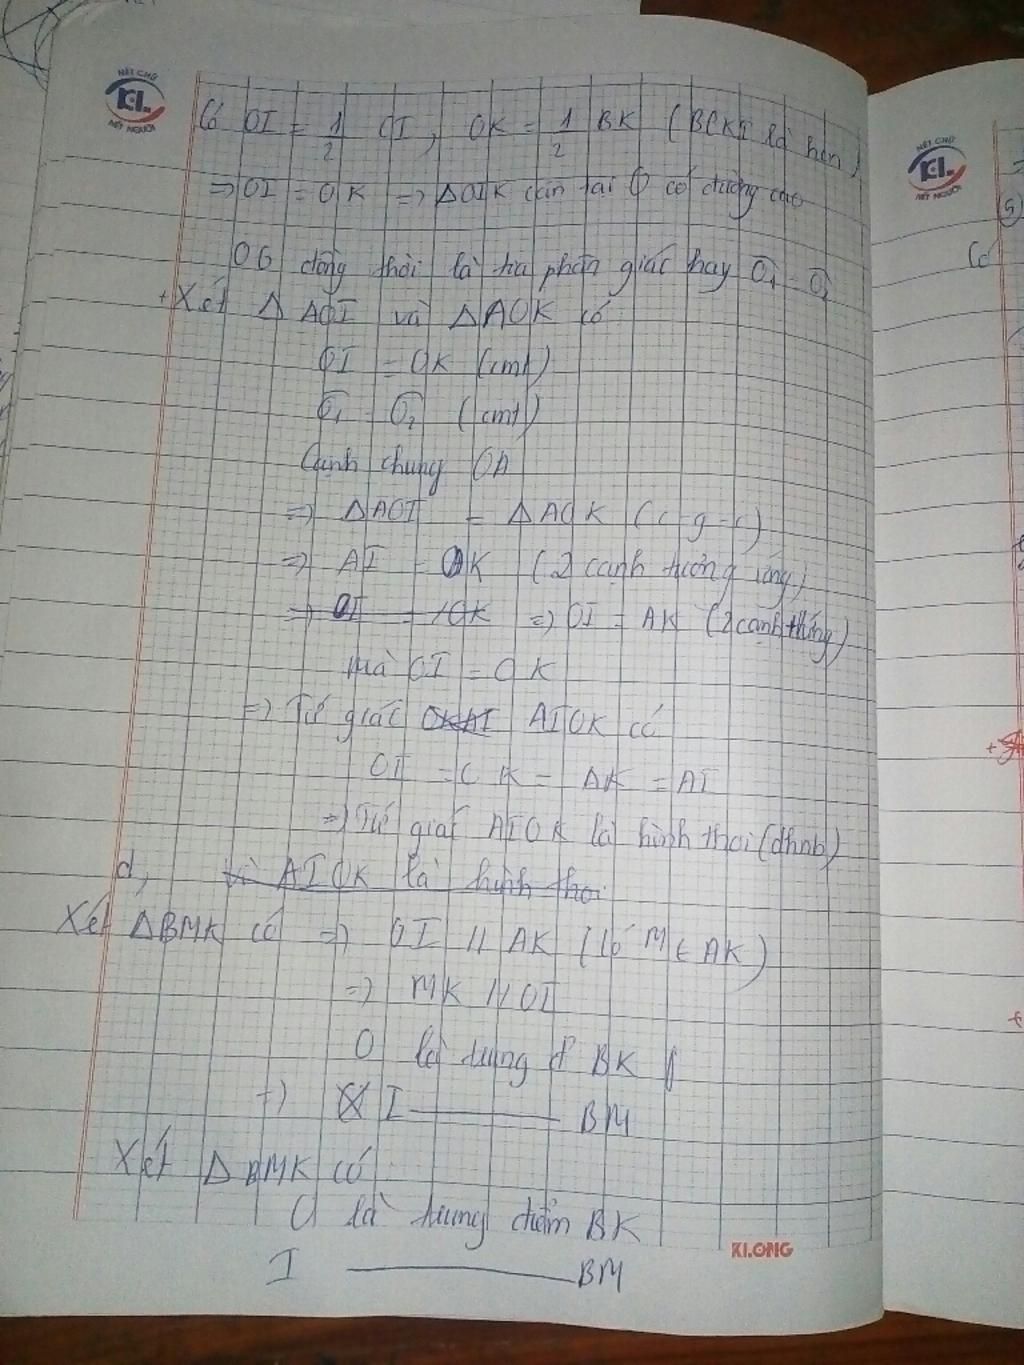 NÉT CHỮ
KL
NẾT NGƯỜI
Có OI = 1/2 CI, OK = 1/2 BK (BCKI là hcn)
=> OI = OK => ΔOIK cân tại O có đường cao
OG đồng thời là tia phân giác hay O₁ = O₂
+ Xét Δ AOI và ΔAOK có
OI = OK (cmt)
O₁ O₂ (cmt)
Cạnh chung OA
=> ΔAOI = ΔAOK (c-g-c)
=> AI = AK (2 cạnh tương ứng)
=> OI = OK => OI = AK (2 cạnh tứng)
mà OI = OK
=> Tứ giác OKAI AIOK có
OI = OK = AK = AI
=> Tứ giác AIOK là hình thoi (dhnb)
d, Vì AIOK là hình thoi
Xét ΔBMK có => OI // AK (Có M ∈ AK)
=> MK // OI
O là trung đ' BK
=> I ——— BM
Xét Δ BMK có
O là trung điểm BK
I ——— BM
KLONG
NÉT CHỮ
KL
NẾT NGƯỜI
5)
Có